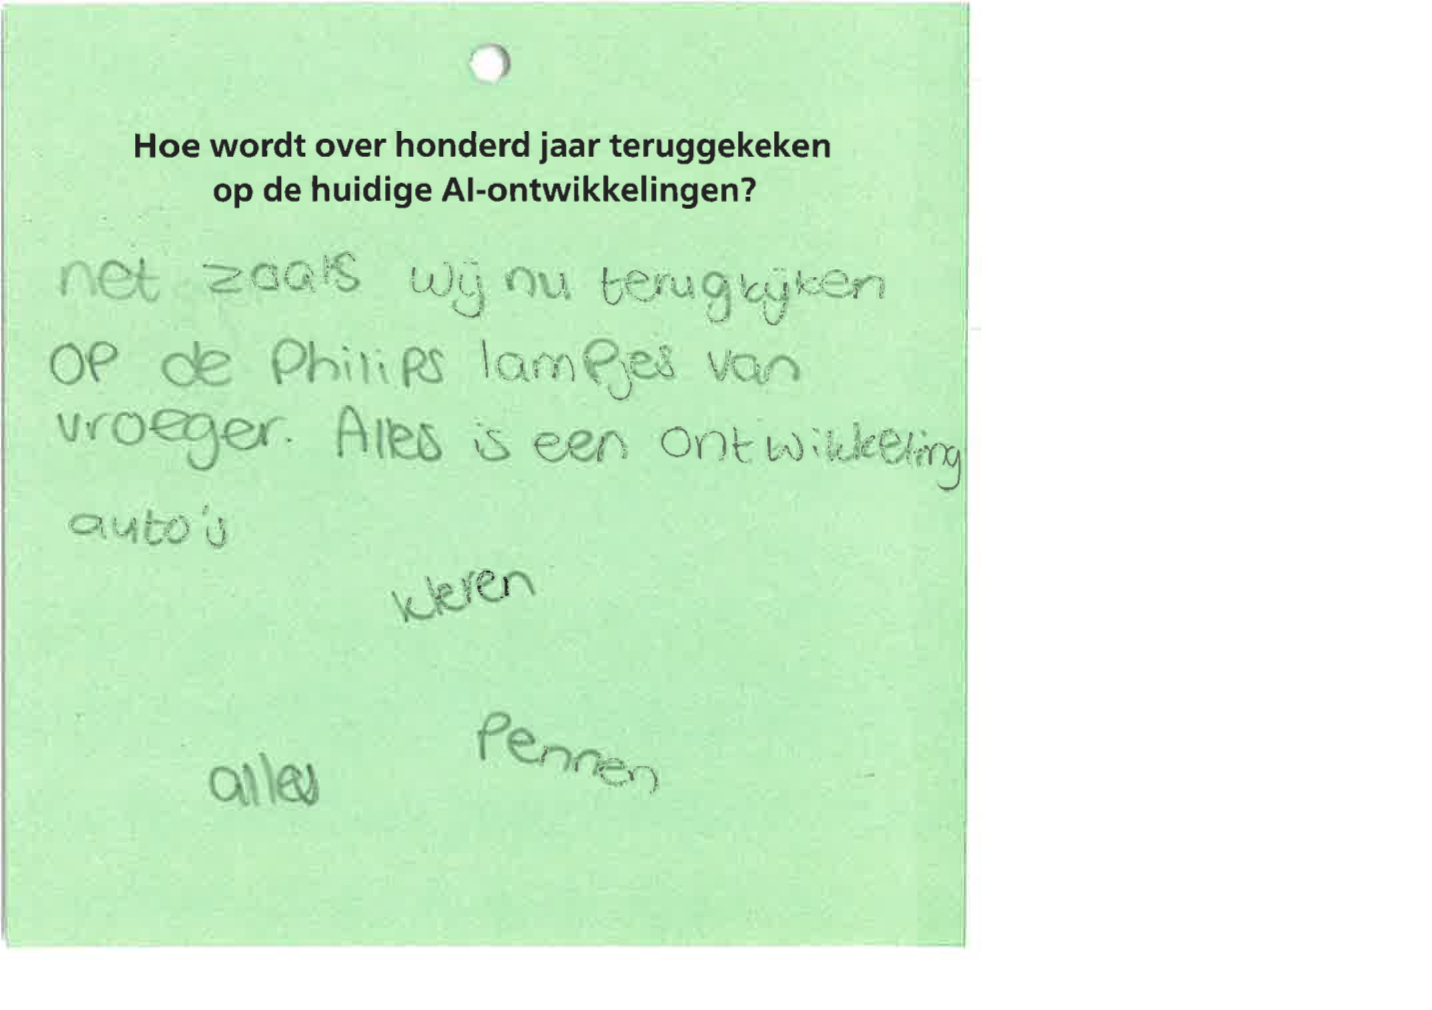 Hoe wordt over honderd jaar teruggekeken
op de huidige AI-ontwikkelingen?
net zoals wij nu terugkijken
op de Philips lampjes van
vroeger. Alles is een ontwikkeling
auto's
kleren
Pennen
alles